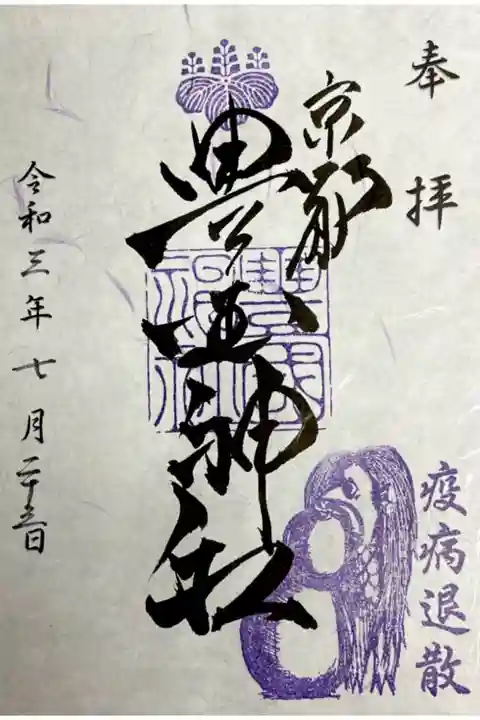 奉拝
京都
豊国神社
豐國神社
疫病退散
令和三年七月二十五日